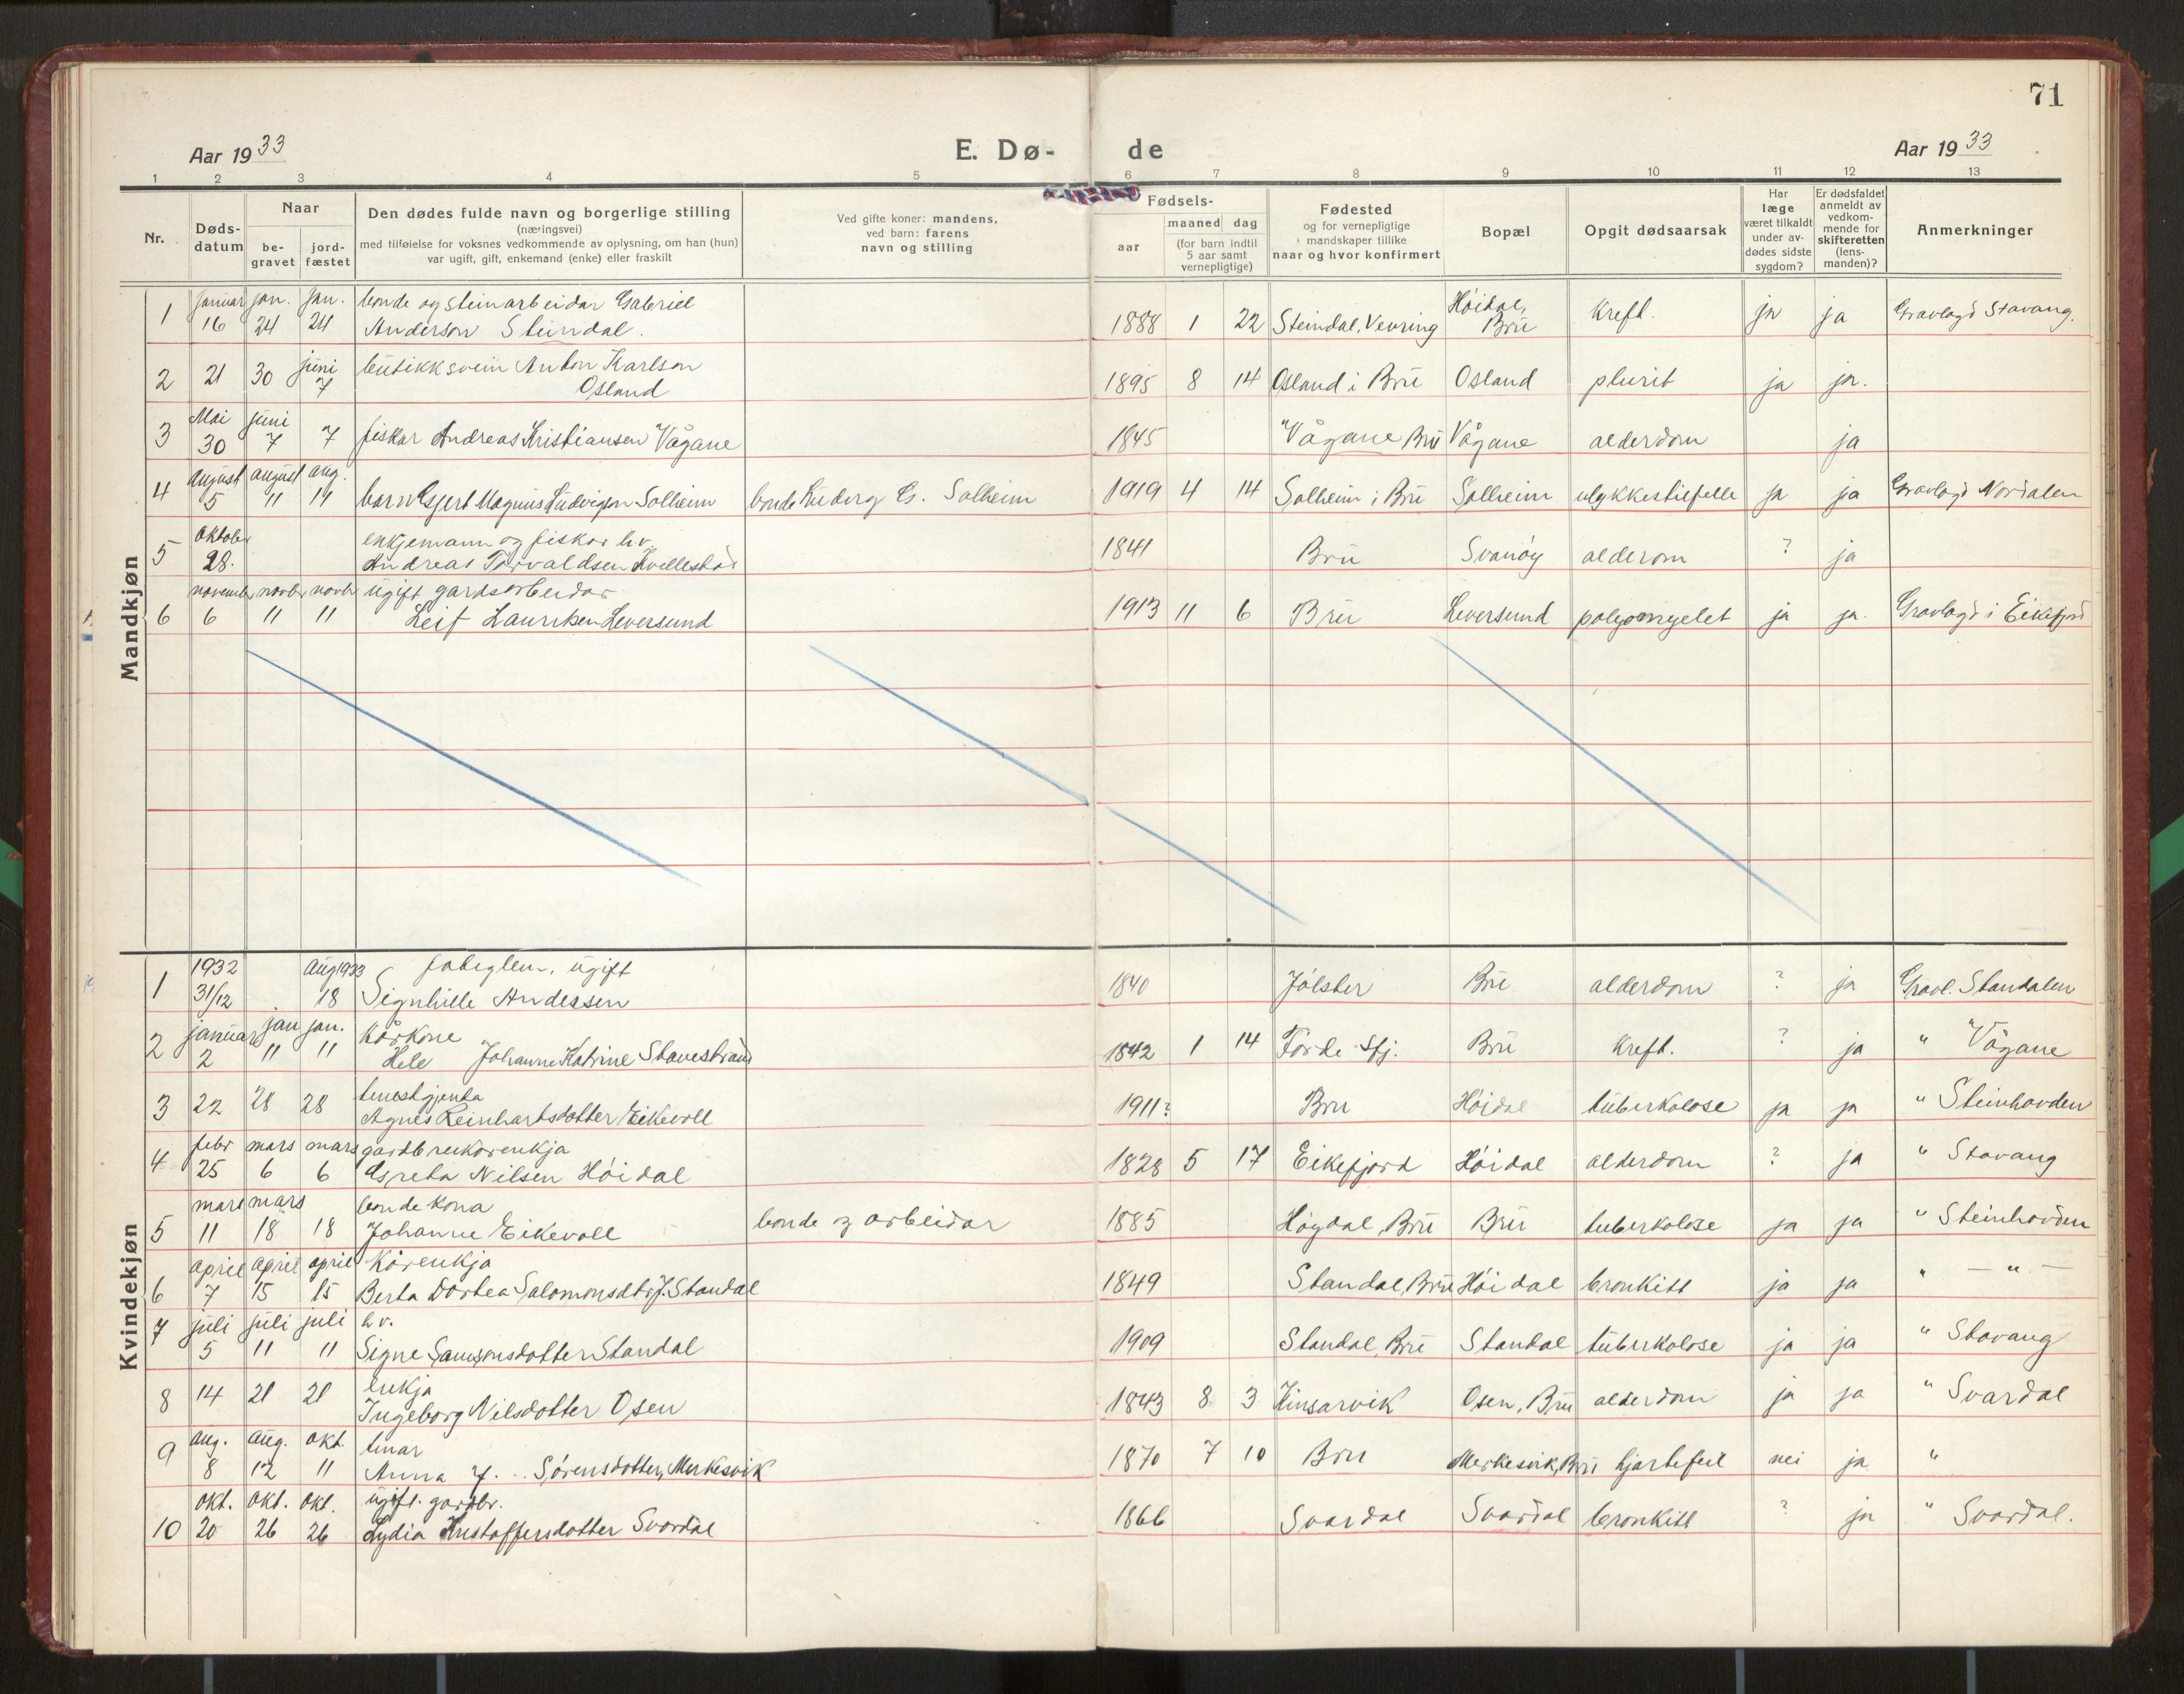 71
Aar 1933
E. Dø-
de
Aar 1933
1 2 3 4 5 6 7 8 9 10 11 12 13
Nr.
Døds-
datum
Naar
be-
gravet
jord-
fæstet
Den dødes fulde navn og borgerlige stilling
(næringsvei)
med tilføielse for voksnes vedkommende av oplysning, om han (hun)
var ugift, gift, enkemand (enke) eller fraskilt
Ved gifte koner: mandens,
ved barn: farens
navn og stilling
Fødsels-
aar
maaned dag
(for barn indtil
5 aar samt
vernepligtige)
Fødested
og for vernepligtige
mandskaper tillike
naar og hvor konfirmert
Bopæl
Opgit dødsaarsak
Har
læge
været tilkaldt
under av-
dødes sidste
sygdom?
Er dødsfaldet
anmeldt av
vedkom-
mende for
skifteretten
(lens-
manden)?
Anmerkninger
Mandkjøn
1 januar 16 jan. 24 jan. 24 bonde og steinarbeidar Gabriel
Anderson Steindal. 1888 1 22 Steindal, Vevring Höidal, Bru kreft. ja ja Gravlagd Stavang.
2 21 30 juni 7 butikksvein Anton Karlson
Osland 1895 8 14 Osland i Bru Osland plurit ja ja.
3 Mai 30 juni 7 7 fiskar Andreas Kristiansen Vågane 1845 Vågane Bru Vågane alderdom ja
4 August 5 august 11 aug. 11 barn Gjert Magnus Ludvigson Solheim bonde Ludvig G. Solheim 1919 4 14 Solheim i Bru Solheim ulykkestilfelle ja ja Gravlagd Nordalen
5 Oktober 28. enkjemann og fiskar hv.
Andreas Torvaldsen Kvellestad 1841 Bru Svanöy alderom ? ja
6 november 6 novbr 11 novbr 11 ugift gardsarbeidar
Leif Lauritsen Leversund 1913 11 6 Bru Leversund polyomyelet ja ja. Gravlagd i Eikefjord
Kvindekjøn
1 1932 31/12 Aug 1933 18 fatiglem, ugift
Signhille Andersen 1840 Jölster Bru alderdom ? ja Gravl. Standalen
2 januar 2 jan 11 jan. 11 Kårkone
Hele Johanne Katrine Stavestrand 1842 1 14 Förde Sfj. Bru Kreft. ? ja " Vågane
3 22 28 28 tenestgjenta
Agnes Reinhartsdotter Eikevoll 1911? Bru Höidal tuberkolose ja ja " Steinhovden
4 febr 25 mars 6 mars 6 gardbrukarenkja
Greta Nilsen Höidal 1828 5 17 Eikefjord Höidal alderdom ? ja " Stavang
5 mars 11 mars 18 18 bondekona
Johanne Eikevoll bonde og arbeidar 1885 Høydal, Bru Bru tuberkolose ja ja " Steinhovden
6 april 7 april 15 april 15 Kårenkja
Berta Dortea Salomonsdtr. J. Standal 1849 Standal, Bru Höidal bronkitt ja ja " — " —
7 juli 5 juli 11 juli 11 hv.
Signe Samsonsdotter Standal 1909 Standal, Bru Standal tuberkolose ja ja " Stavang
8 14 21 21 enkja
Ingeborg Nilsdotter Osen 1843 8 3 Kinsarvik Osen, Bru alderdom ja ja " Svardal
9 aug. 8 aug. 12 okt 11 tenar
Anna J. .. Sörensdotter, Merkesvik 1870 7 10 Bru Merkesvik, Bru hjartefeil nei ja "
10 okt. 20 okt. 26 okt. 26 ugift. gardbr.
Lydia Kristoffersdotter Svardal 1866 Svardal Svardal bronkitt ? ja " Svardal.